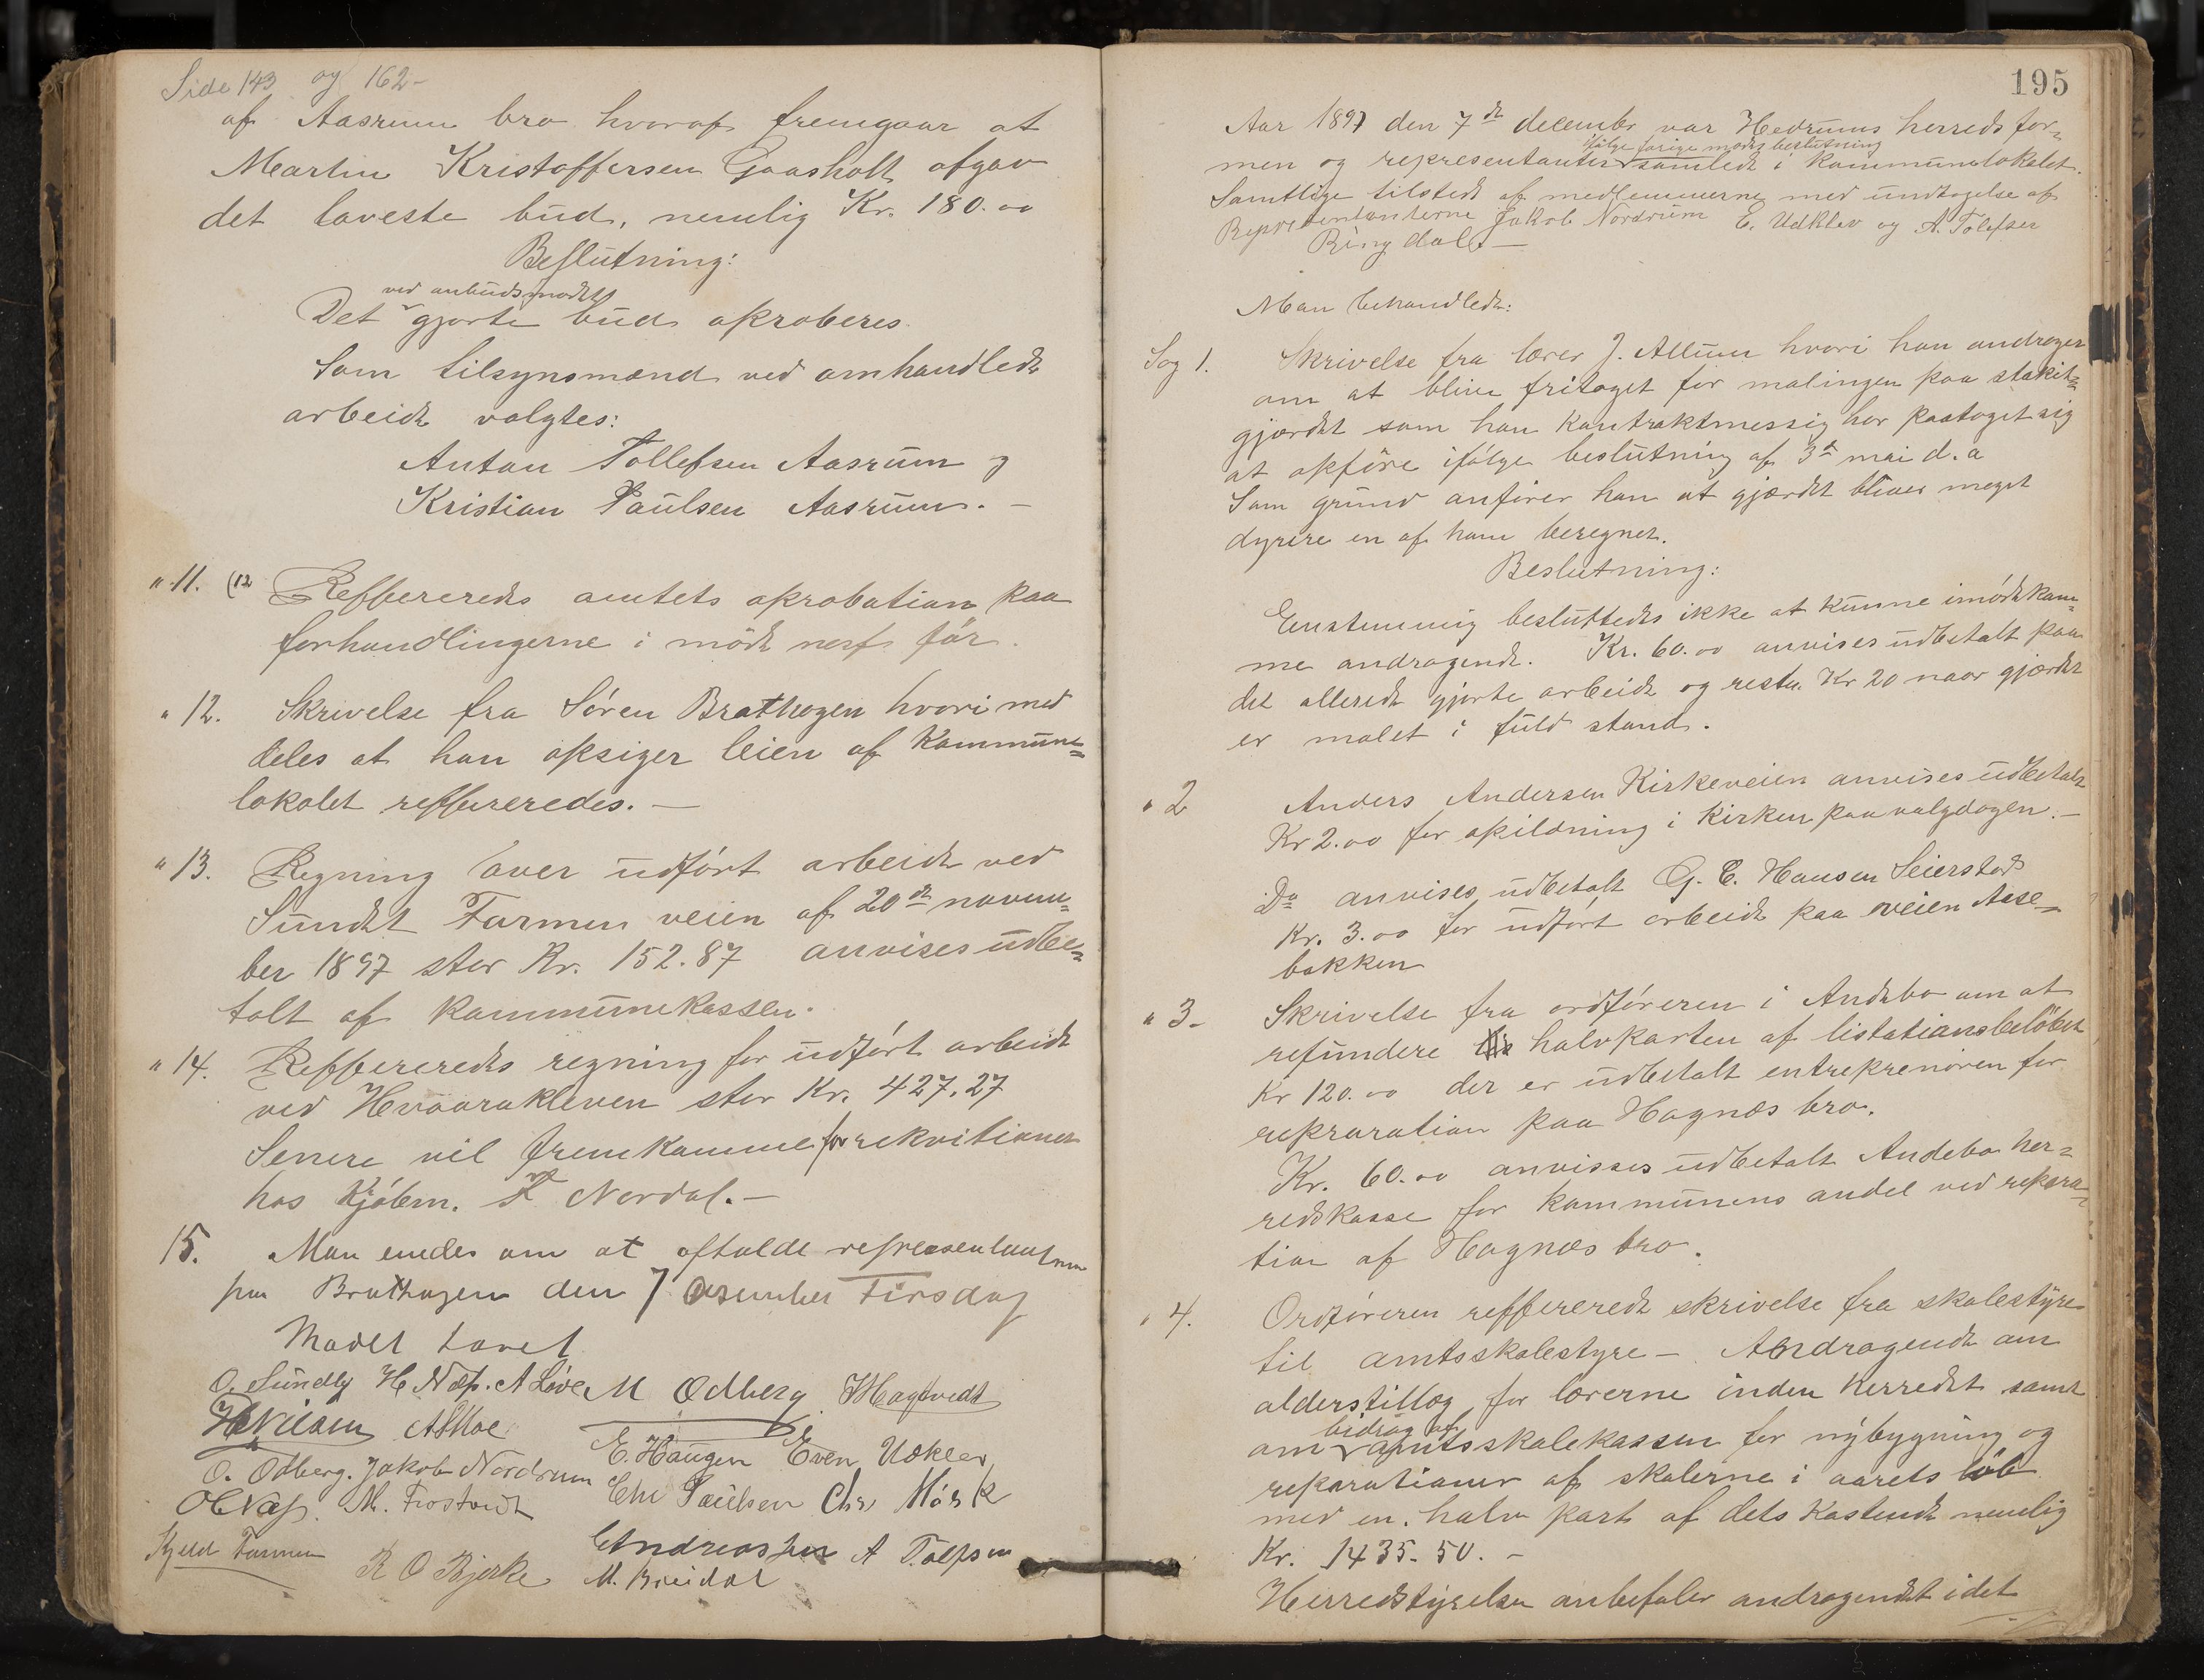 Side 143 og 162-
af Aasrum bro hvoraf fremgaar at
Martin Kristoffersen Gaasholt afgav
det laveste bud, nemlig Kr. 180.00
Beslutning:
ved anbudsmødet
Det gjorte bud aproberes
Som tilsynsmænd ved omhandlede
arbeide valgtes:
Anton Tollefsen Aasrum og
Kristian Paulsen Aasrum. -
" 11. (12 Reffereredes amtets aprobation paa
forhandlingerne i møde nest før.
" 12. Skrivelse fra Søren Brathagen hvori med
deles at han opsiger leien af Kommune=
lokalet reffereredes. -
" 13. Regning over udført arbeide ved
Sundet Farmen veien af 20de novem=
ber 1897 stor Kr. 152.87 anvises udbe=
talt af kommunekassen.
" 14. Reffereredes regning for udført arbeide
ved Hvaarakleven stor Kr. 427.27
Senere vil fremkomme for rekvitioner
hos Kjøbm. F Nordal. -
15. Man enedes om at aftolde representanterne
paa Brathagen den 7 Desember Tirsdag
Mødet hævet
O. Sundby H. Næss. A Løve M Odberg Hagtvedt
H Nilsen A Moe
O. Odberg. Jakob Nordrum E. Haugen Even Udklev
O C Næss. M. Trostvedt Chr Paulsen Chr. Mørk
Kjeld Farmen R O Bjerke Andreas A Tolfsen
M. Breidal
195
Aar 1897 den 7de decembr var Hedrums herreds for=
ifølge forige møds beslutning
men og representanter samlede i kommunelokalet.
Samtlige tilstede af medlemmerne med undtagelse af
Representanterne Jakob Nordrum E. Udklev og A. Tolefsen
Ringdal. -
Man behandlede:
Sag 1. Skrivelse fra lærer J. Allum hvori han androger
om at blive fritaget for malingen paa stakit=
gjærdet som han kontraktmessig har paataget sig
at opføre ifølge beslutning af 3de mai d. a
Som grund anfører han at gjærdet bliver meget
dyrere en af ham beregnet.
Beslutning:
Enstemmig besluttedes ikke at kunne imødekom=
me andragende. Kr. 60.00 anvises udbetalt paa
det allerede gjorte arbeide og restn. Kr 20 naar gjærdet
er malet i fuld stand.
" 2 Anders Andersen Kirkeveien anvises udbetalt
Kr 2.00 for opildning i Kirken paa valgdagen. -
Do anvises udbetalt G. E. Hansen Seierstad
Kr. 3.00 for udført arbeide paa veien Aase=
bakken
" 3- Skrivelse fra ordføreren i Andebo om at
refundere halvparten af listationsbeløbet
Kr 120.00 der er udbetalt entreprenøren for
repraration paa Hagnæs bro.
Kr. 60.00 anvisses udbetalt Andebo her=
redskasse for kommunens andel ved repara=
tion af Hagnæs bro.
" 4. Ordføreren reffererede skrivelse fra skolestyre
til amtsskolestyre - Andragende om
alderstillæg for lærerne inden Herredet samt
bidrag af
om amtsskolekassen for nybygning og
reparationer af skolerne i aarets løb
med en halv part af dets Kostende nemlig
Kr. 1435.50. -
Herredstyrelsen anbefaler andragendet idet